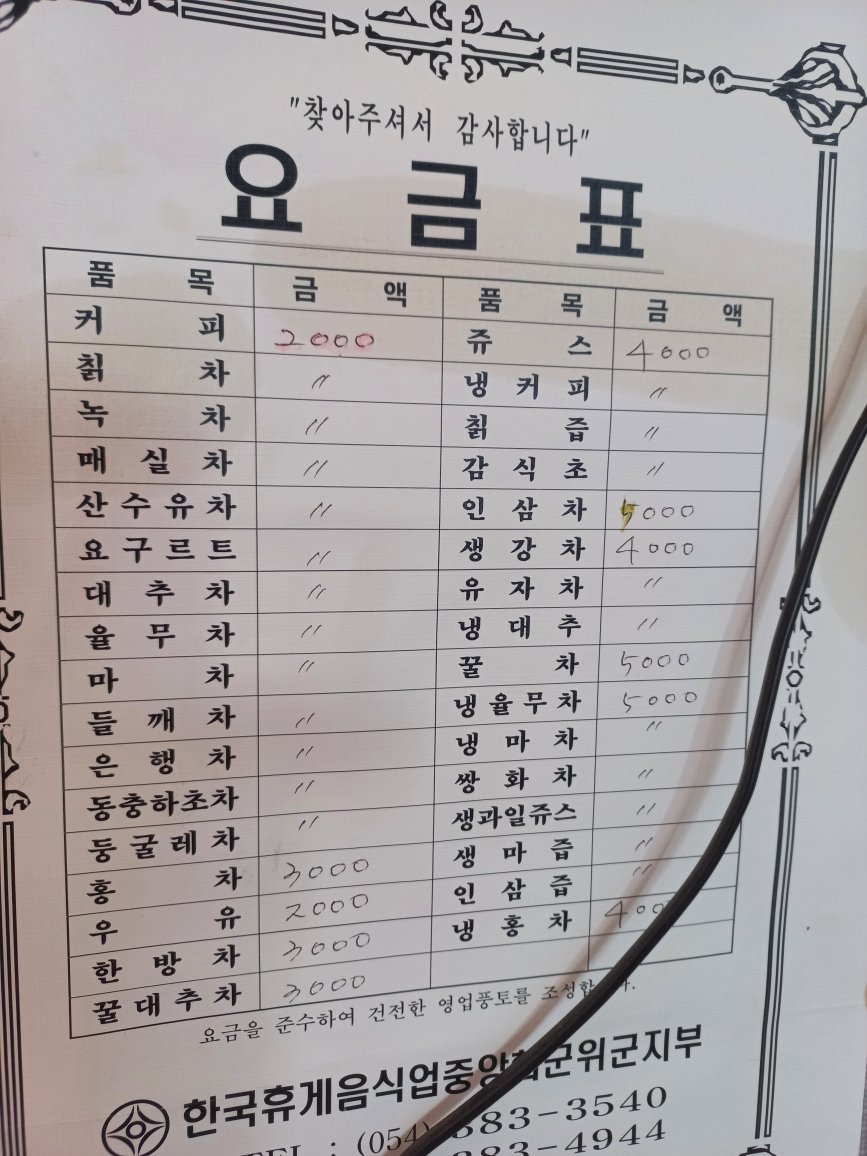 "찾아주셔서 감사합니다"
요 금 표
품 목 금 액 품 목 금 액
커 피 2000 쥬 스 4000
칡 차 〃 냉 커 피 〃
녹 차 〃 칡 즙 〃
매 실 차 〃 감 식 초 〃
산 수 유 차 〃 인 삼 차 5000
요 구 르 트 〃 생 강 차 4000
대 추 차 〃 유 자 차 〃
율 무 차 〃 냉 대 추 〃
마 차 〃 꿀 차 5000
들 깨 차 〃 냉 율 무 차 5000
은 행 차 〃 냉 마 차 〃
동충하초차 〃 쌍 화 차 〃
둥 굴 레 차 〃 생과일쥬스 〃
홍 차 3000 생 마 즙 〃
우 유 2000 인 삼 즙 〃
한 방 차 3000 냉 홍 차 400
꿀 대 추 차 3000
요금을 준수하여 건전한 영업풍토를
한국휴게음식업중앙회군위군지부
TEL : (054) 383-3540
383-4944